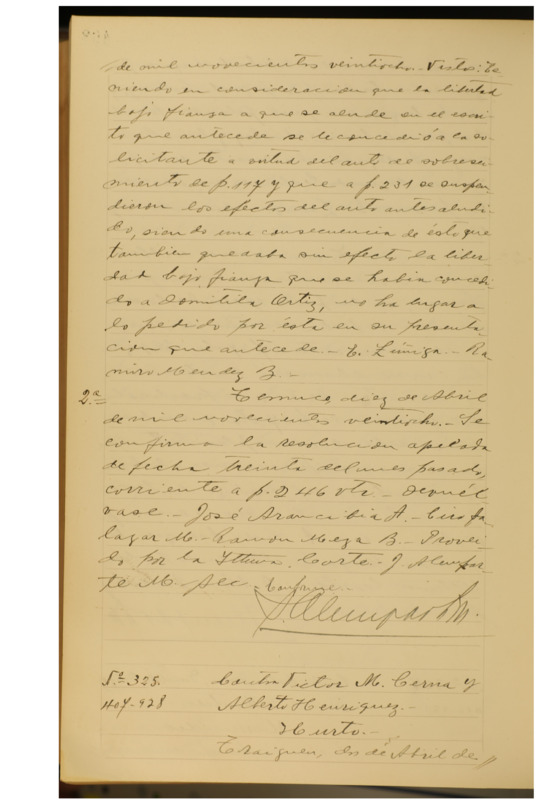 de mil novecientos veintiocho.- Vistos: Te
niendo en consideracion que la libertad
bajo fianza a que se alude en el escri-
to que antecede se le concedió a la so-
licitante a virtud del auto de sobresei-
miento de f. 117 y que a f. 231 se suspen-
dieron los efectos del auto antes aludi-
do, siendo una consecuencia de ésto que
tambien quedaba sin efecto la liber
dad bajo fianza que se habia concedi-
do a Domitila Ortiz, no ha lugar a
lo pedido por ésta en su presenta-
cion que antecede.- E. Zúñiga.- Ra-
miro Mendez B.-
2.a Temuco diez de Abril
de mil novecientos veintiocho.- Se
confirma la resolucion apelada
de fecha treinta del mes pasado,
corriente a f. 246 vta.- Devuél
vase.- José Arancibia A.- Ciro Sa-
lazar M.- Ramon Meza B.- Provei-
do por la Iltma. Corte.- J. Alempar-
te M. Sec.- Conforme.-
N.o 325. Contra Victor M. Cerna y
407-928 Alberto Henriquez.-
Hurto.-
Traiguen, dos de Abril de